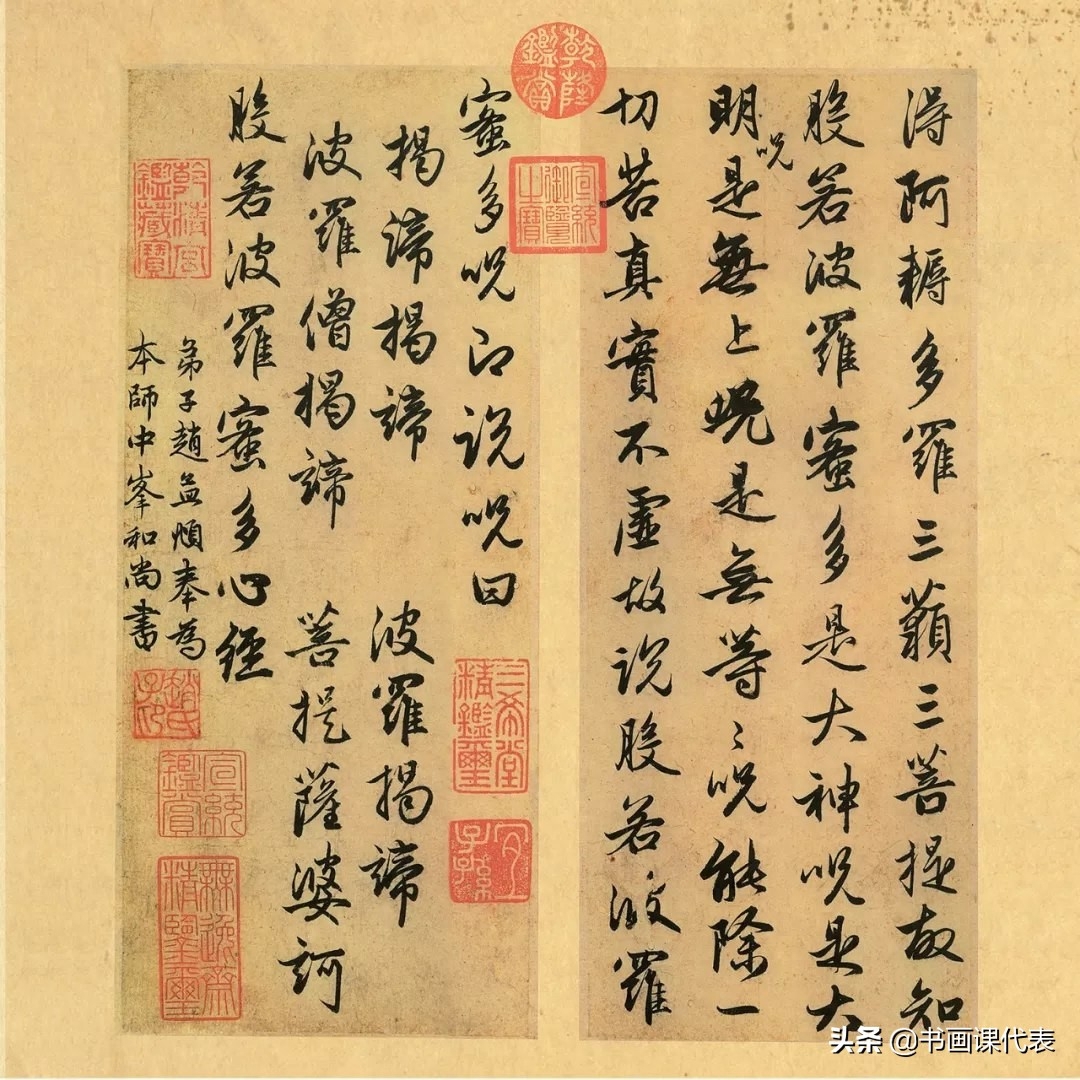 得阿耨多羅三藐三菩提故知
般若波羅蜜多是大神呪是大
明呪是無上呪是无等〻呪能除一
切苦真實不虛故說般若波羅
蜜多呪即說呪曰
揭諦揭諦 波羅揭諦
波羅僧揭諦 菩提薩婆訶
般若波羅蜜多心經
弟子趙孟頫奉為
本師中峯和尚書
乾隆鑑賞
宣統御覽之寶
三希堂精鑑璽
宜子孫
乾清宮鑑藏寶
趙氏子昂
宣統鑑賞
無逸齋精鑑璽
头条 @书画课代表